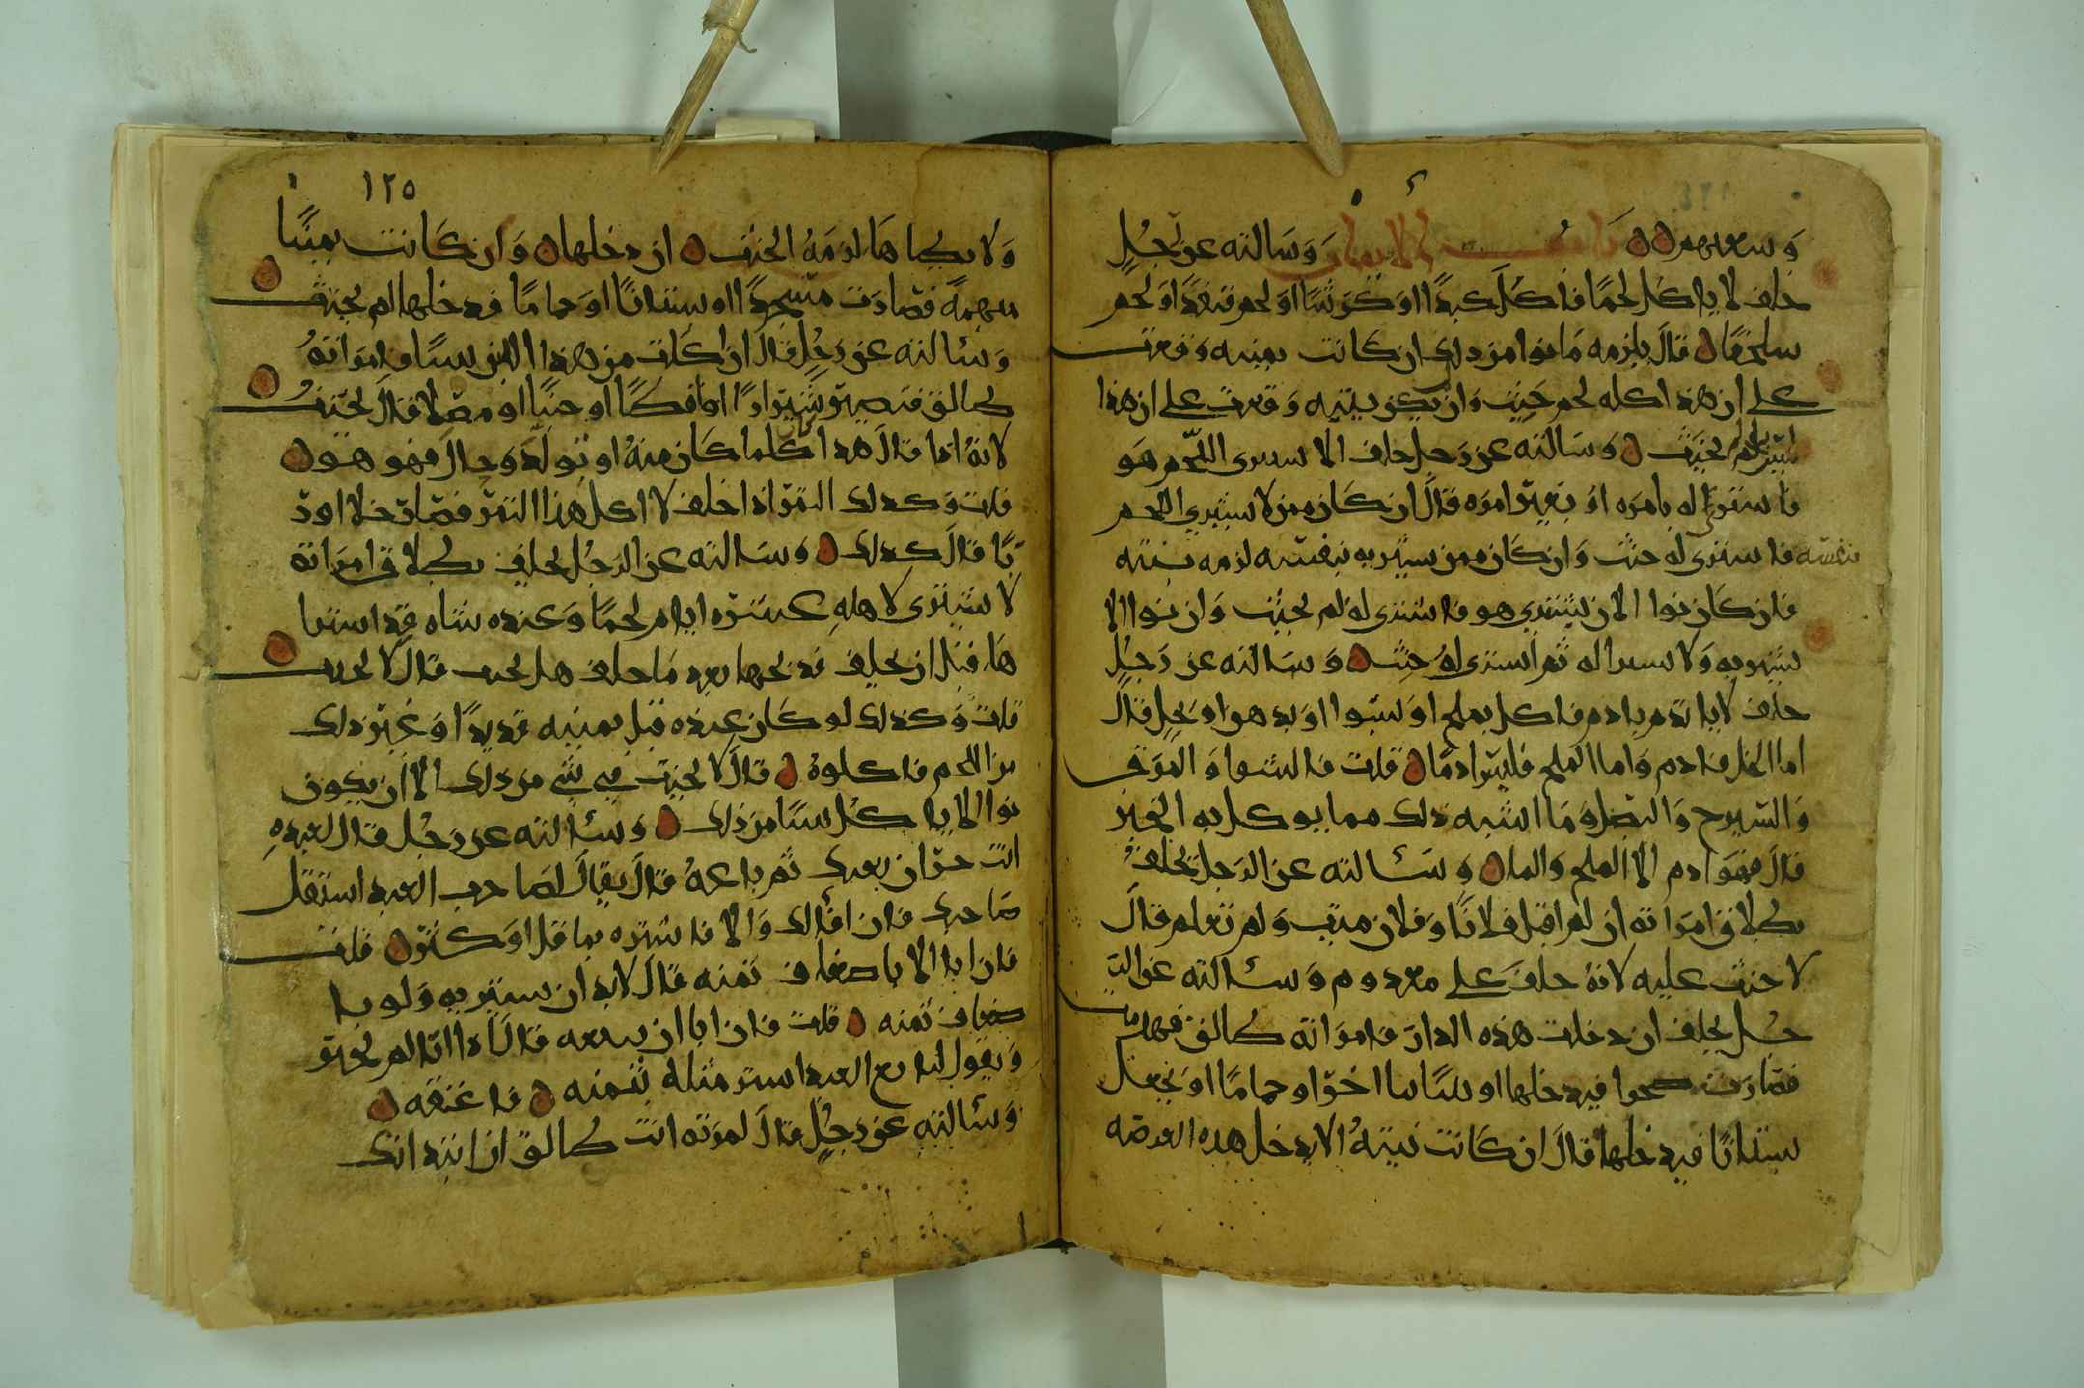 وسعيهم باب الايمان وسالته عن رجل
حلف لا ياكل لحما فاكل كبدا او كرشا او لحم قنفذ او لحم
سلحفا قال يلزمه ما نوا من ذلك ان كانت يمينه وقعت
على ان هذا كله لحم حنث وان يكن يمينه وقعت على ان هذا
ليس بلحم لم يحنث وسالته عن رجل حلف الا يشتري اللحم هو
فاشترى له بامره او بغير امره قال ان كان ممن لا يشتري اللحم
بنفسه فاشتري له حنث وان كان ممن يشتريه بنفسه لزمه نيته
فان كان نوا الا ان يشتري هو فاشترى له لم يحنث وان نوا الا
يشتريه ولا يشترا له ثم اشترى له حنث وسالته عن رجل
حلف لا ياتدم بادم فاكل بملح او بشوا او بدهن او بخل قال
اما الخل فادم واما الملح فليس ادما قلت فالشوا والمرق
والشيرج والبصل وما اشبه ذلك مما يوكل به الخبز
قال فهو ادم الا الملح والما وسئالته عن الرجل يحلف
بطلاق امراته ان لم اقتل فلانا وفلان ميت ولم يعلم قال
لا حنث عليه لانه حلف على معدوم وسئالته عن الر
جل يحلف ان دخلت هذه الدار فامراته طالق فهدمت
فصارت صحرا فيدخلها او بنيانا اخر او حماما او يجعل
بستانا فيدخلها قال ان كانت نيته الا يدخل هذه العرصه
١٢٥
ولا يطاها لزمه الحنث ان دخلها وان كانت يمينا
مبهمة فصارت مسجدا او بستانا او حماما فدخلها لم يحنث
وسئالته عن رجل قال ان اكلت من هذا اللبن شيئا فامراته
طالق فيصير شيرازا او اقطا او جبنا او مصلا قال يحنث
لانه اذا قال هذا كلما كان منه او تولد وحال فهو هو
قلت وكذلك التمر اذا حلف لا اكل هذا التمر فصار خلا او د
با قال كذلك وسئالته عن الرجل يحلف بطلاق امراته
لا يشتري لاهله عشرة ايام لحما وعنده شاه قد اشترا
ها قبل ان يحلف فذبحها بعد ما حلف هل يحنث قال لا يحنث
قلت وكذلك لو كان عنده قبل يمينه قديدا وغير ذلك
من اللحم فاكلوه قال لا يحنث في شي من ذلك الا ان يكون
نوا الا ياكل شيئا من ذلك وسئالته عن رجل قال لعبده
انت حر ان بعتك ثم باعه قال يقال لصاحب العبد استقل
صاحبك فان اقالك والا فاشتره بما قل او كثر قلت
فان ابا الا باضعاف ثمنه قال لا بد ان يشتريه ولو با
ضعاف ثمنه قلت فان ابا ان يبيعه قال اذا انه لم يحنث
ويقول لبايع العبد اشتر مثله بثمنه فاعتقه
وسئالته عن رجل قال لمرته انت طالق ان ابتداتك